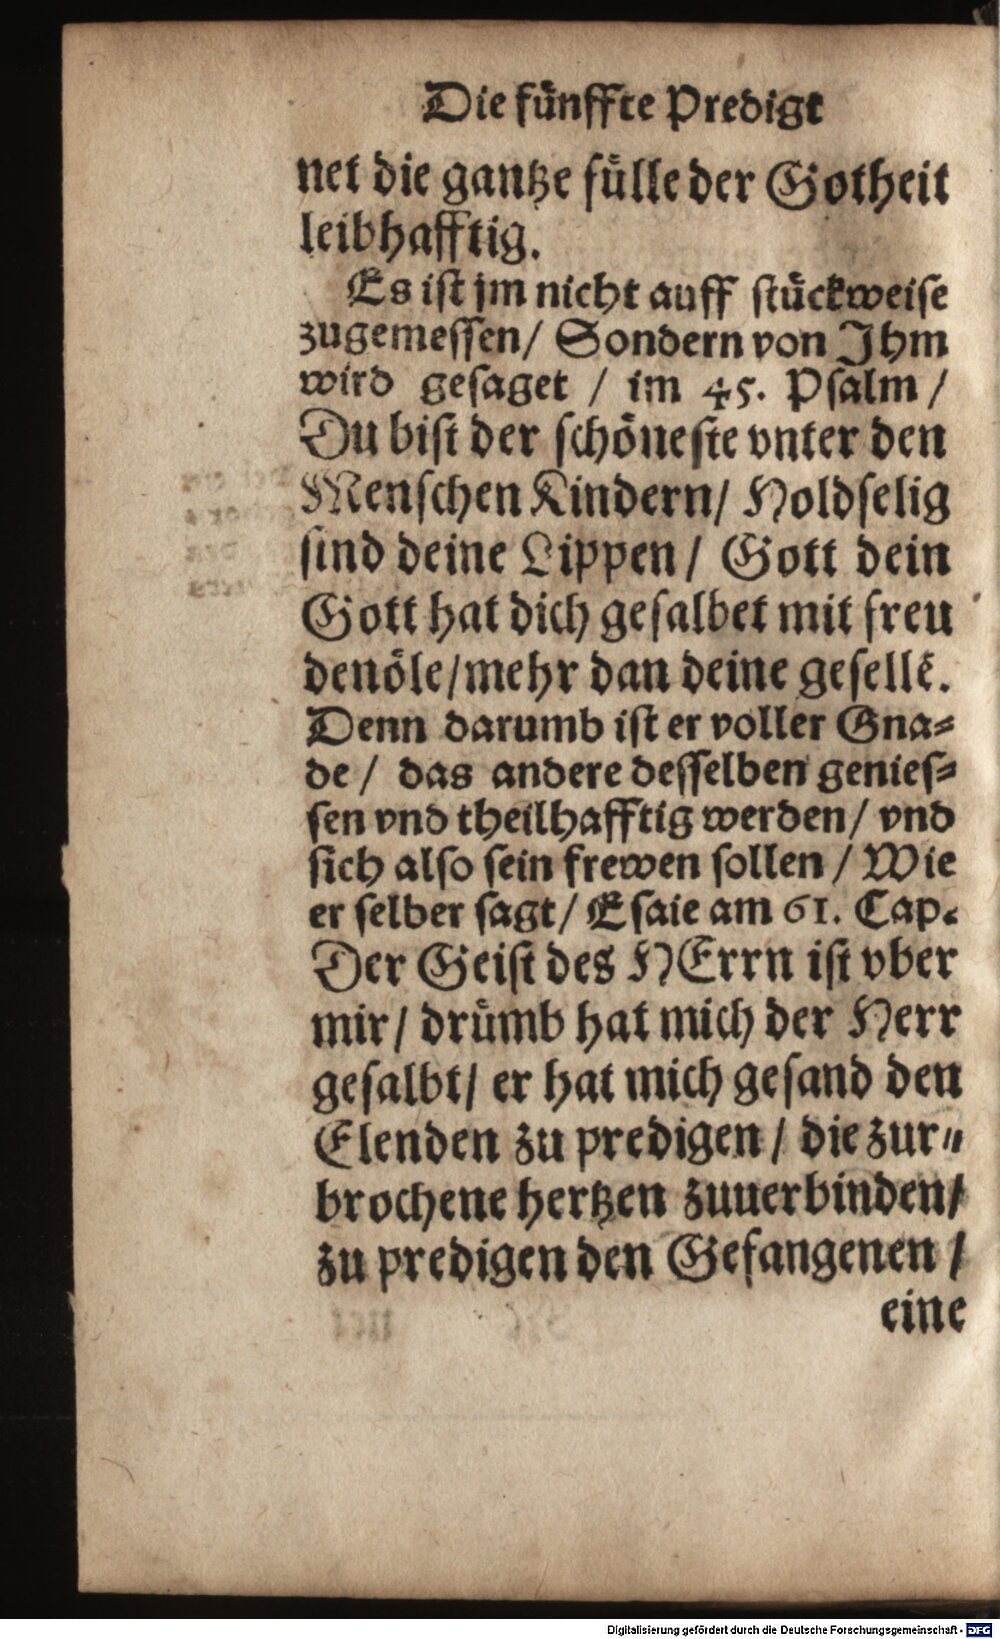 Die fünffte Predigt
net die gantze fülle der Gotheit
leibhafftig.
Es ist jm nicht auff stückweise
zugemessen/ Sondern von Ihm
wird gesaget / im 45. Psalm /
Du bist der schöneste vnter den
Menschen Kindern/ Holdselig
sind deine Lippen/ Gott dein
Gott hat dich gesalbet mit freu
denöle/mehr dan deine gesellẽ.
Denn darumb ist er voller Gna⸗
de/ das andere desselben genies⸗
sen vnd theilhafftig werden/ vnd
sich also sein frewen sollen/ Wie
er selber sagt/ Esaie am 61. Cap.
Der Geist des HErrn ist vber
mir/ drümb hat mich der Herr
gesalbt/ er hat mich gesand den
Elenden zu predigen/ die zur⸗
brochene hertzen zuuerbinden/
zu predigen den Gefangenen /
eine
Digitalisierung gefördert durch die Deutsche Forschungsgemeinschaft - DFG